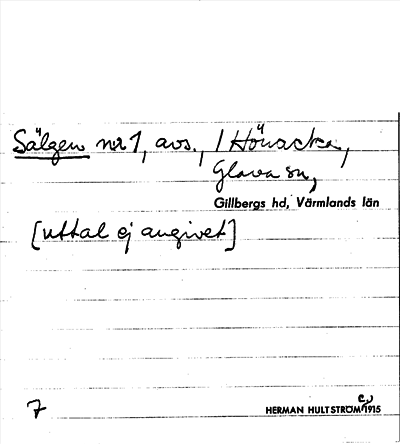 Sälgen nr 1, avs., / Hönacka,
Glava sn,
Gillbergs hd, Värmlands län
[uttal ej angivet]
7
HERMAN HULTSTRÖM 1915